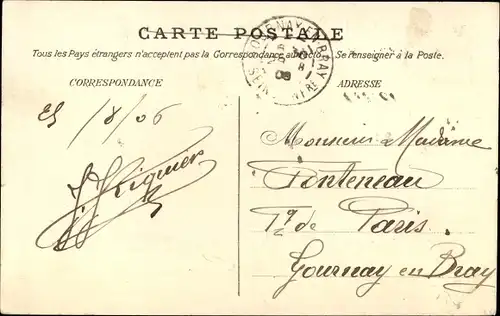 CARTE POSTALE
Tous les Pays étrangers n'acceptent pas la Correspondance au recto. Se renseigner à la Poste.
CORRESPONDANCE
ADRESSE
GOURNAY-EN-BRAY
Monsieur Madame
Fonteneau
de Paris
Gournay en Bray